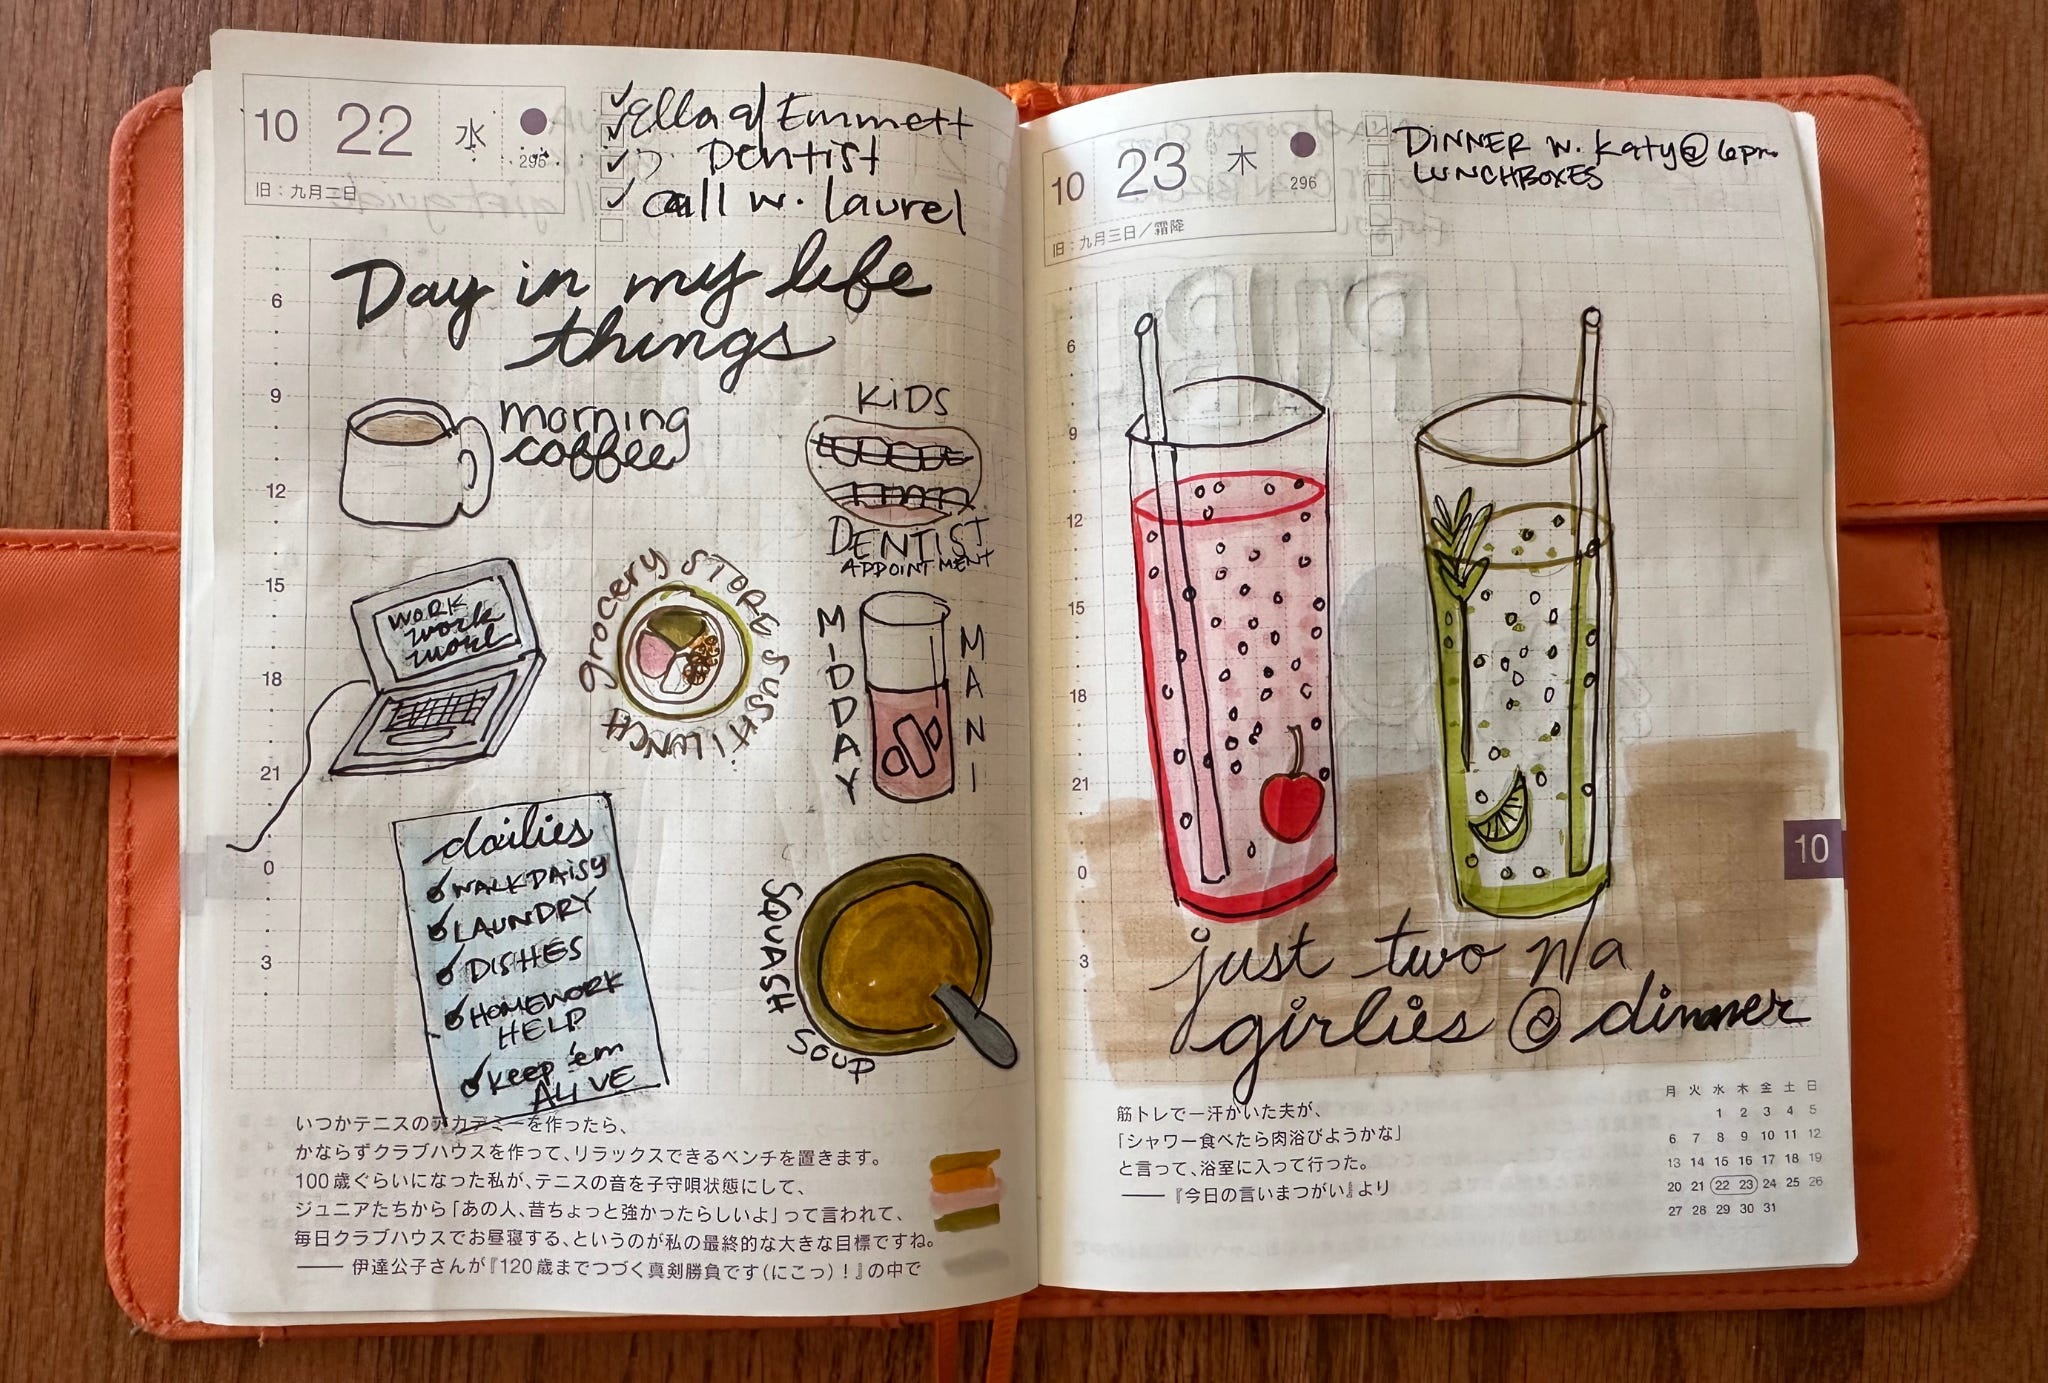 10 22 水
295
旧：九月二日
Ella & Emmett
Dentist
call w. Laurel
Day in my life
things
6
9
12
15
18
21
0
3
morning
coffee
KIDS
DENTIST
APPOINTMENT
WORK
work
work
grocery STORE SUSHI LUNCH
MIDDAY
MANI
dailies
WALK DAISY
LAUNDRY
DISHES
HOMEWORK
HELP
keep 'em
ALIVE
SQUASH SOUP
いつかテニスのアカデミーを作ったら、
かならずクラブハウスを作って、リラックスできるベンチを置きます。
100歳ぐらいになった私が、テニスの音を子守唄状態にして、
ジュニアたちから「あの人、昔ちょっと強かったらしいよ」って言われて、
毎日クラブハウスでお昼寝する、というのが私の最終的な大きな目標ですね。
―― 伊達公子さんが『120歳までつづく真剣勝負です（にこっ）！』の中で
10 23 木
296
旧：九月三日／霜降
DINNER w. Katy @ 6pm
LUNCHBOXES
6
9
12
15
18
21
0
3
10
just two n/a
girlies @ dinner
筋トレで一汗かいた夫が、
「シャワー食べたら肉浴びようかな」
と言って、浴室に入って行った。
――『今日の言いまつがい』より
月 火 水 木 金 土 日
1 2 3 4 5
6 7 8 9 10 11 12
13 14 15 16 17 18 19
20 21 22 23 24 25 26
27 28 29 30 31